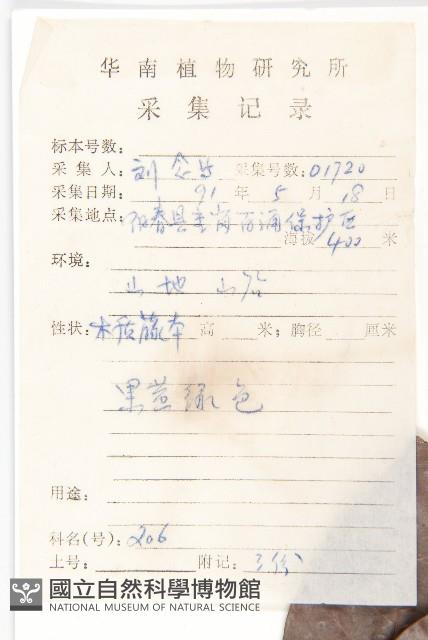 华南植物研究所
采集记录
标本号数：
采集人：刘念 采集号数：01720
采集日期：91年5月18日
采集地点：阳春县 百涌保护区
海拔 400 米
环境：
山地 山谷
性状：木质藤本 高 米；胸径 厘米
果黄绿色
用途：
科名(号)：206
土号： 附记：三份
國立自然科學博物館
NATIONAL MUSEUM OF NATURAL SCIENCE